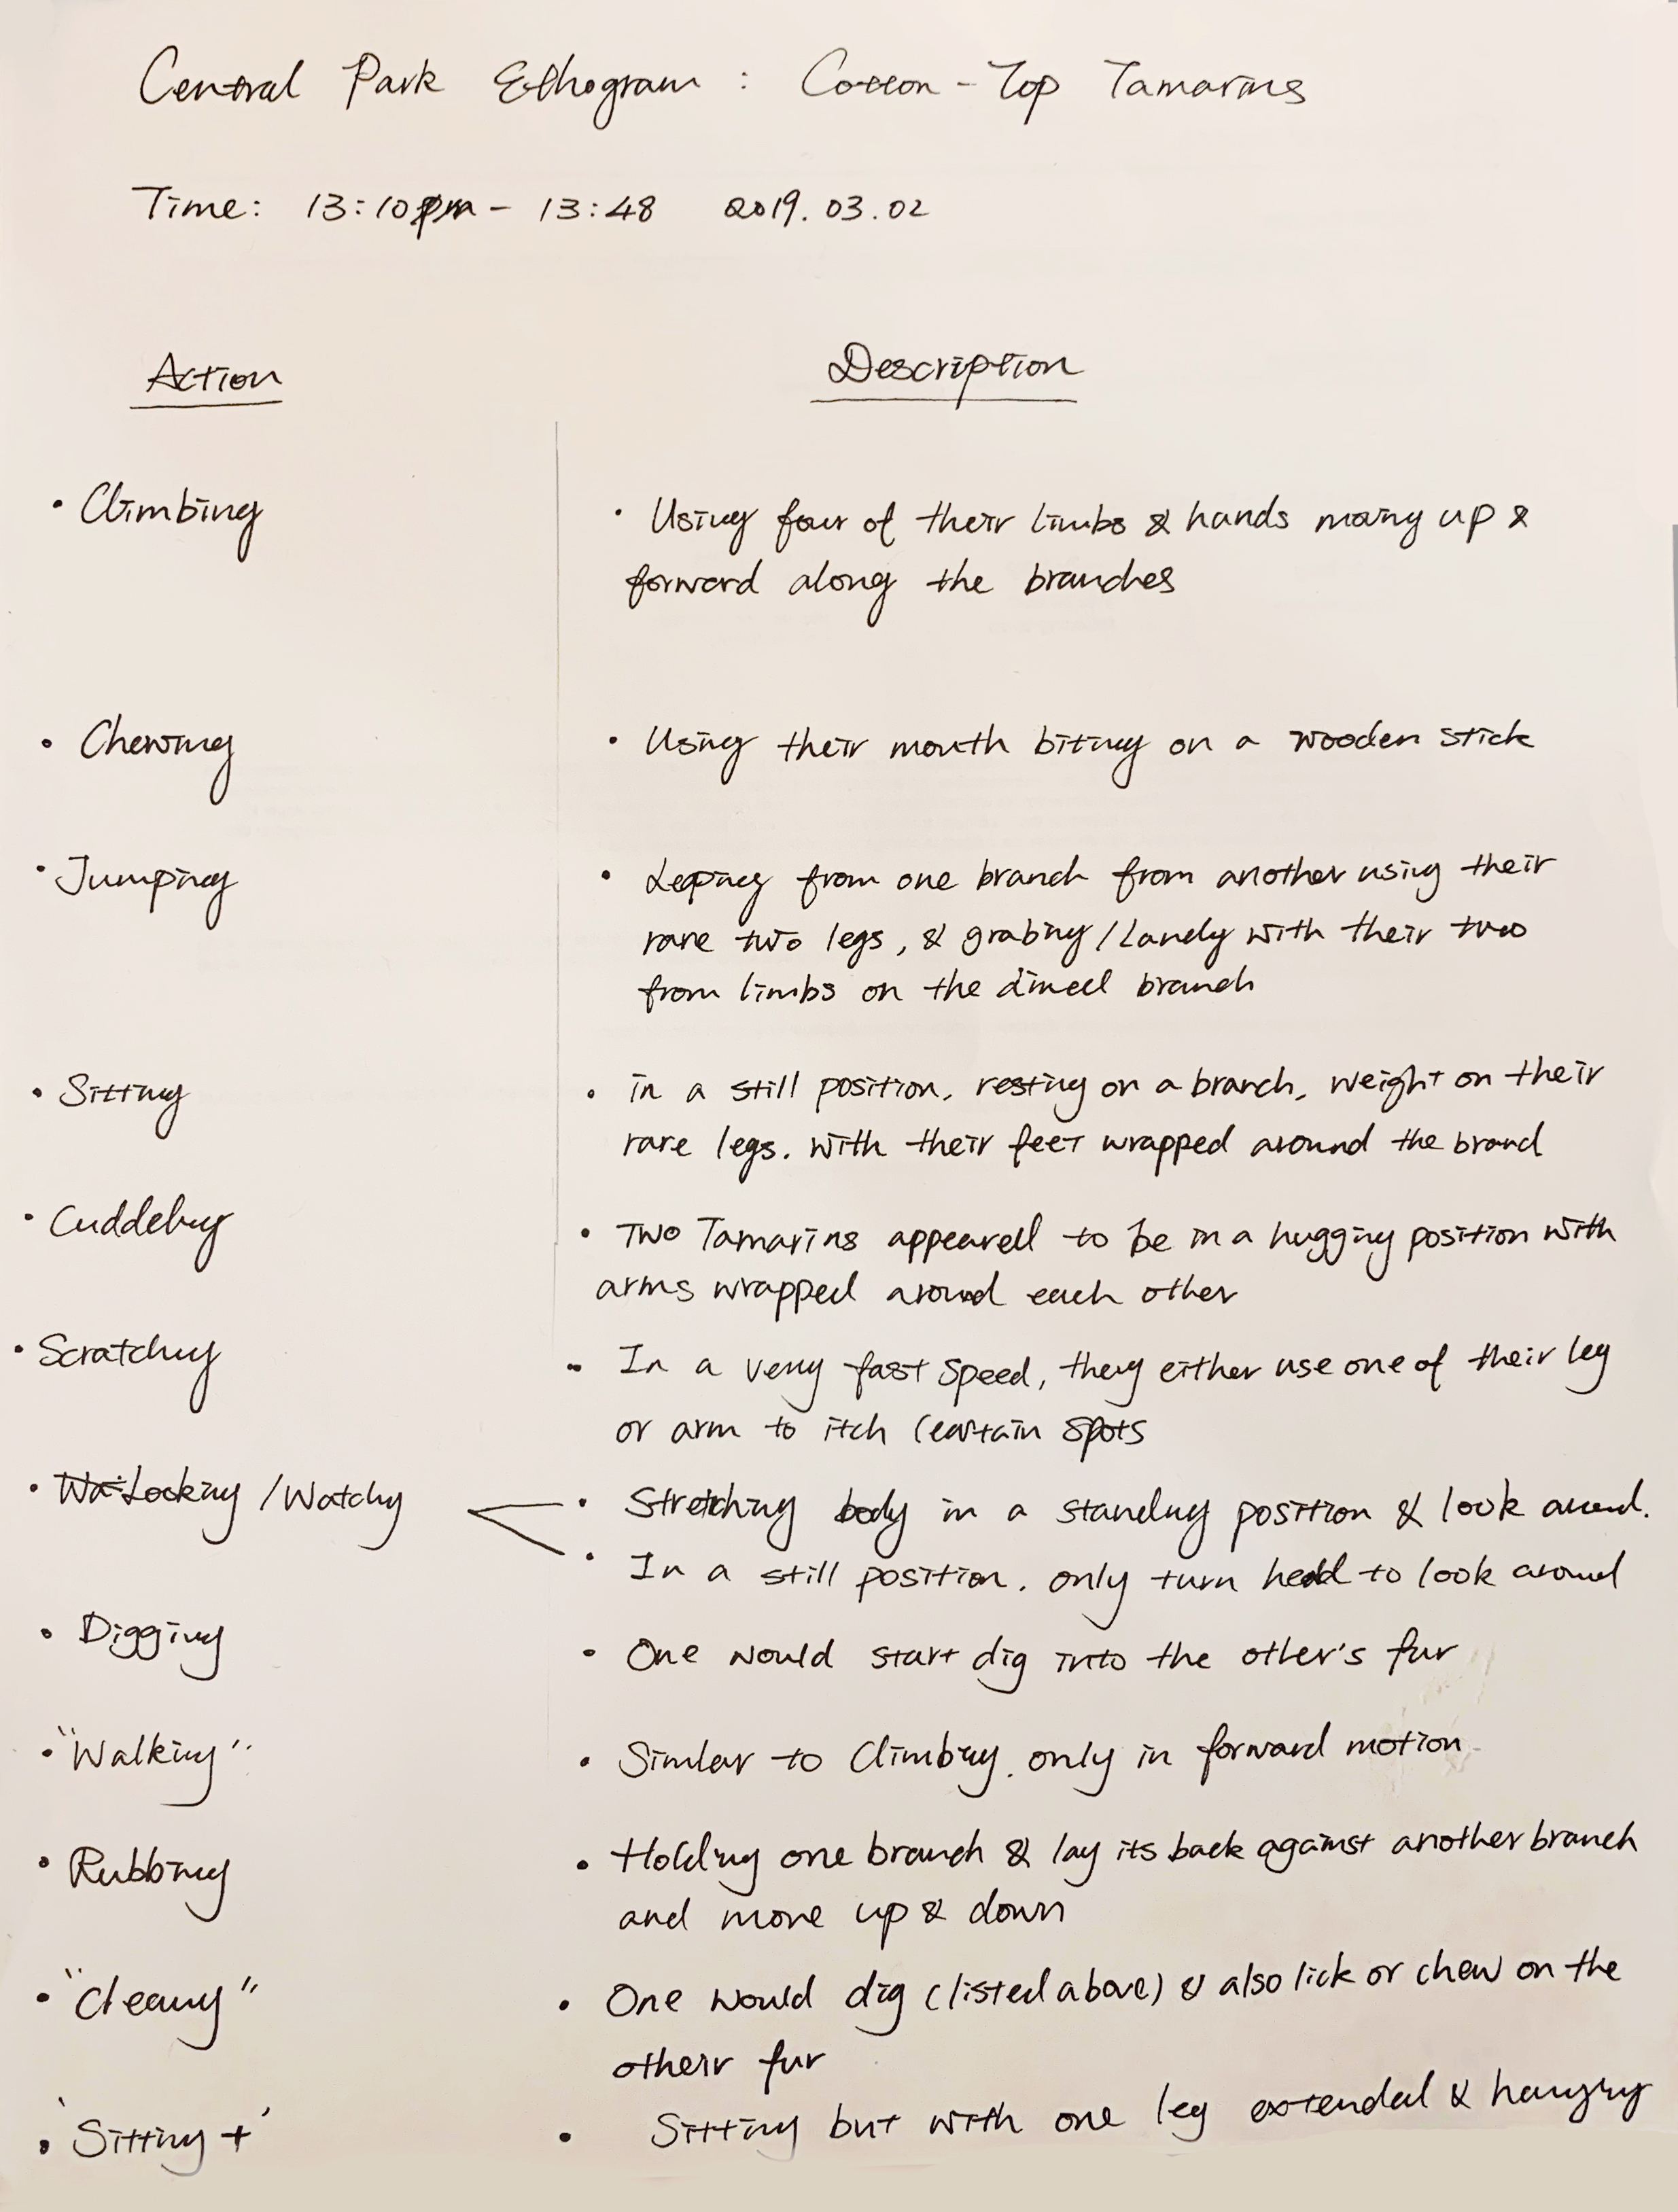 Central Park Ethogram : Cotton-Top Tamarins
Time: 13:10pm - 13:48 2019.03.02
Action
Description
• Climbing
• Using four of their limbs & hands moving up &
forward along the branches
• Chewing
• Using their mouth biting on a wooden stick
• Jumping
• Leaping from one branch from another using their
rare two legs, & grabing/landing with their two
from limbs on the branch
• Sitting
• in a still position, resting on a branch, weight on their
rare legs. with their feet wrapped around the brand
• Cuddeling
• Two Tamarins appeared to be in a hugging position with
arms wrapped around each other
• Scratching
• In a very fast speed, they either use one of their leg
or arm to itch certain spots
• Looking /Watching
• Stretching body in a standing position & look around.
• In a still position. only turn head to look around
• Digging
• One would start dig into the other's fur
• "Walking"
• Similar to Climbing. only in forward motion
• Rubbing
• Holding one branch & lay its back against another branch
and move up & down
• "Cleaning"
• One would dig (listed above) & also lick or chew on the
otheir fur
• 'Sitting +'
• Sitting but with one leg extended & hanging